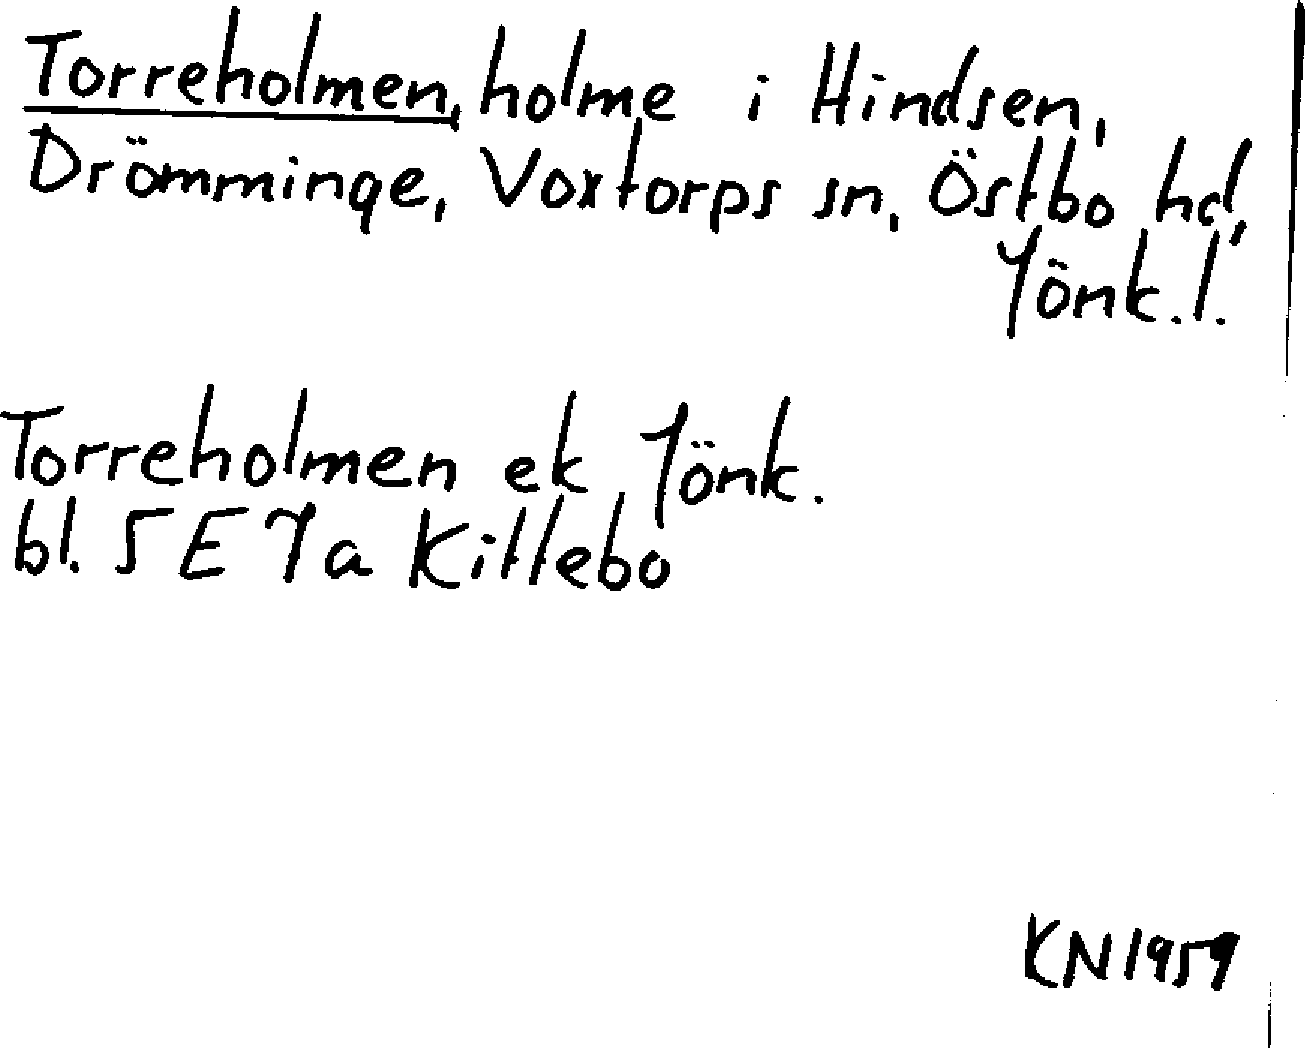 Torreholmen, holme i Hindsen,
Drömminge, Voxtorps sn, Östbo hd,
Jönk.l.
Torreholmen ek Jönk.
bl. 5E7a Killebo
KN1959